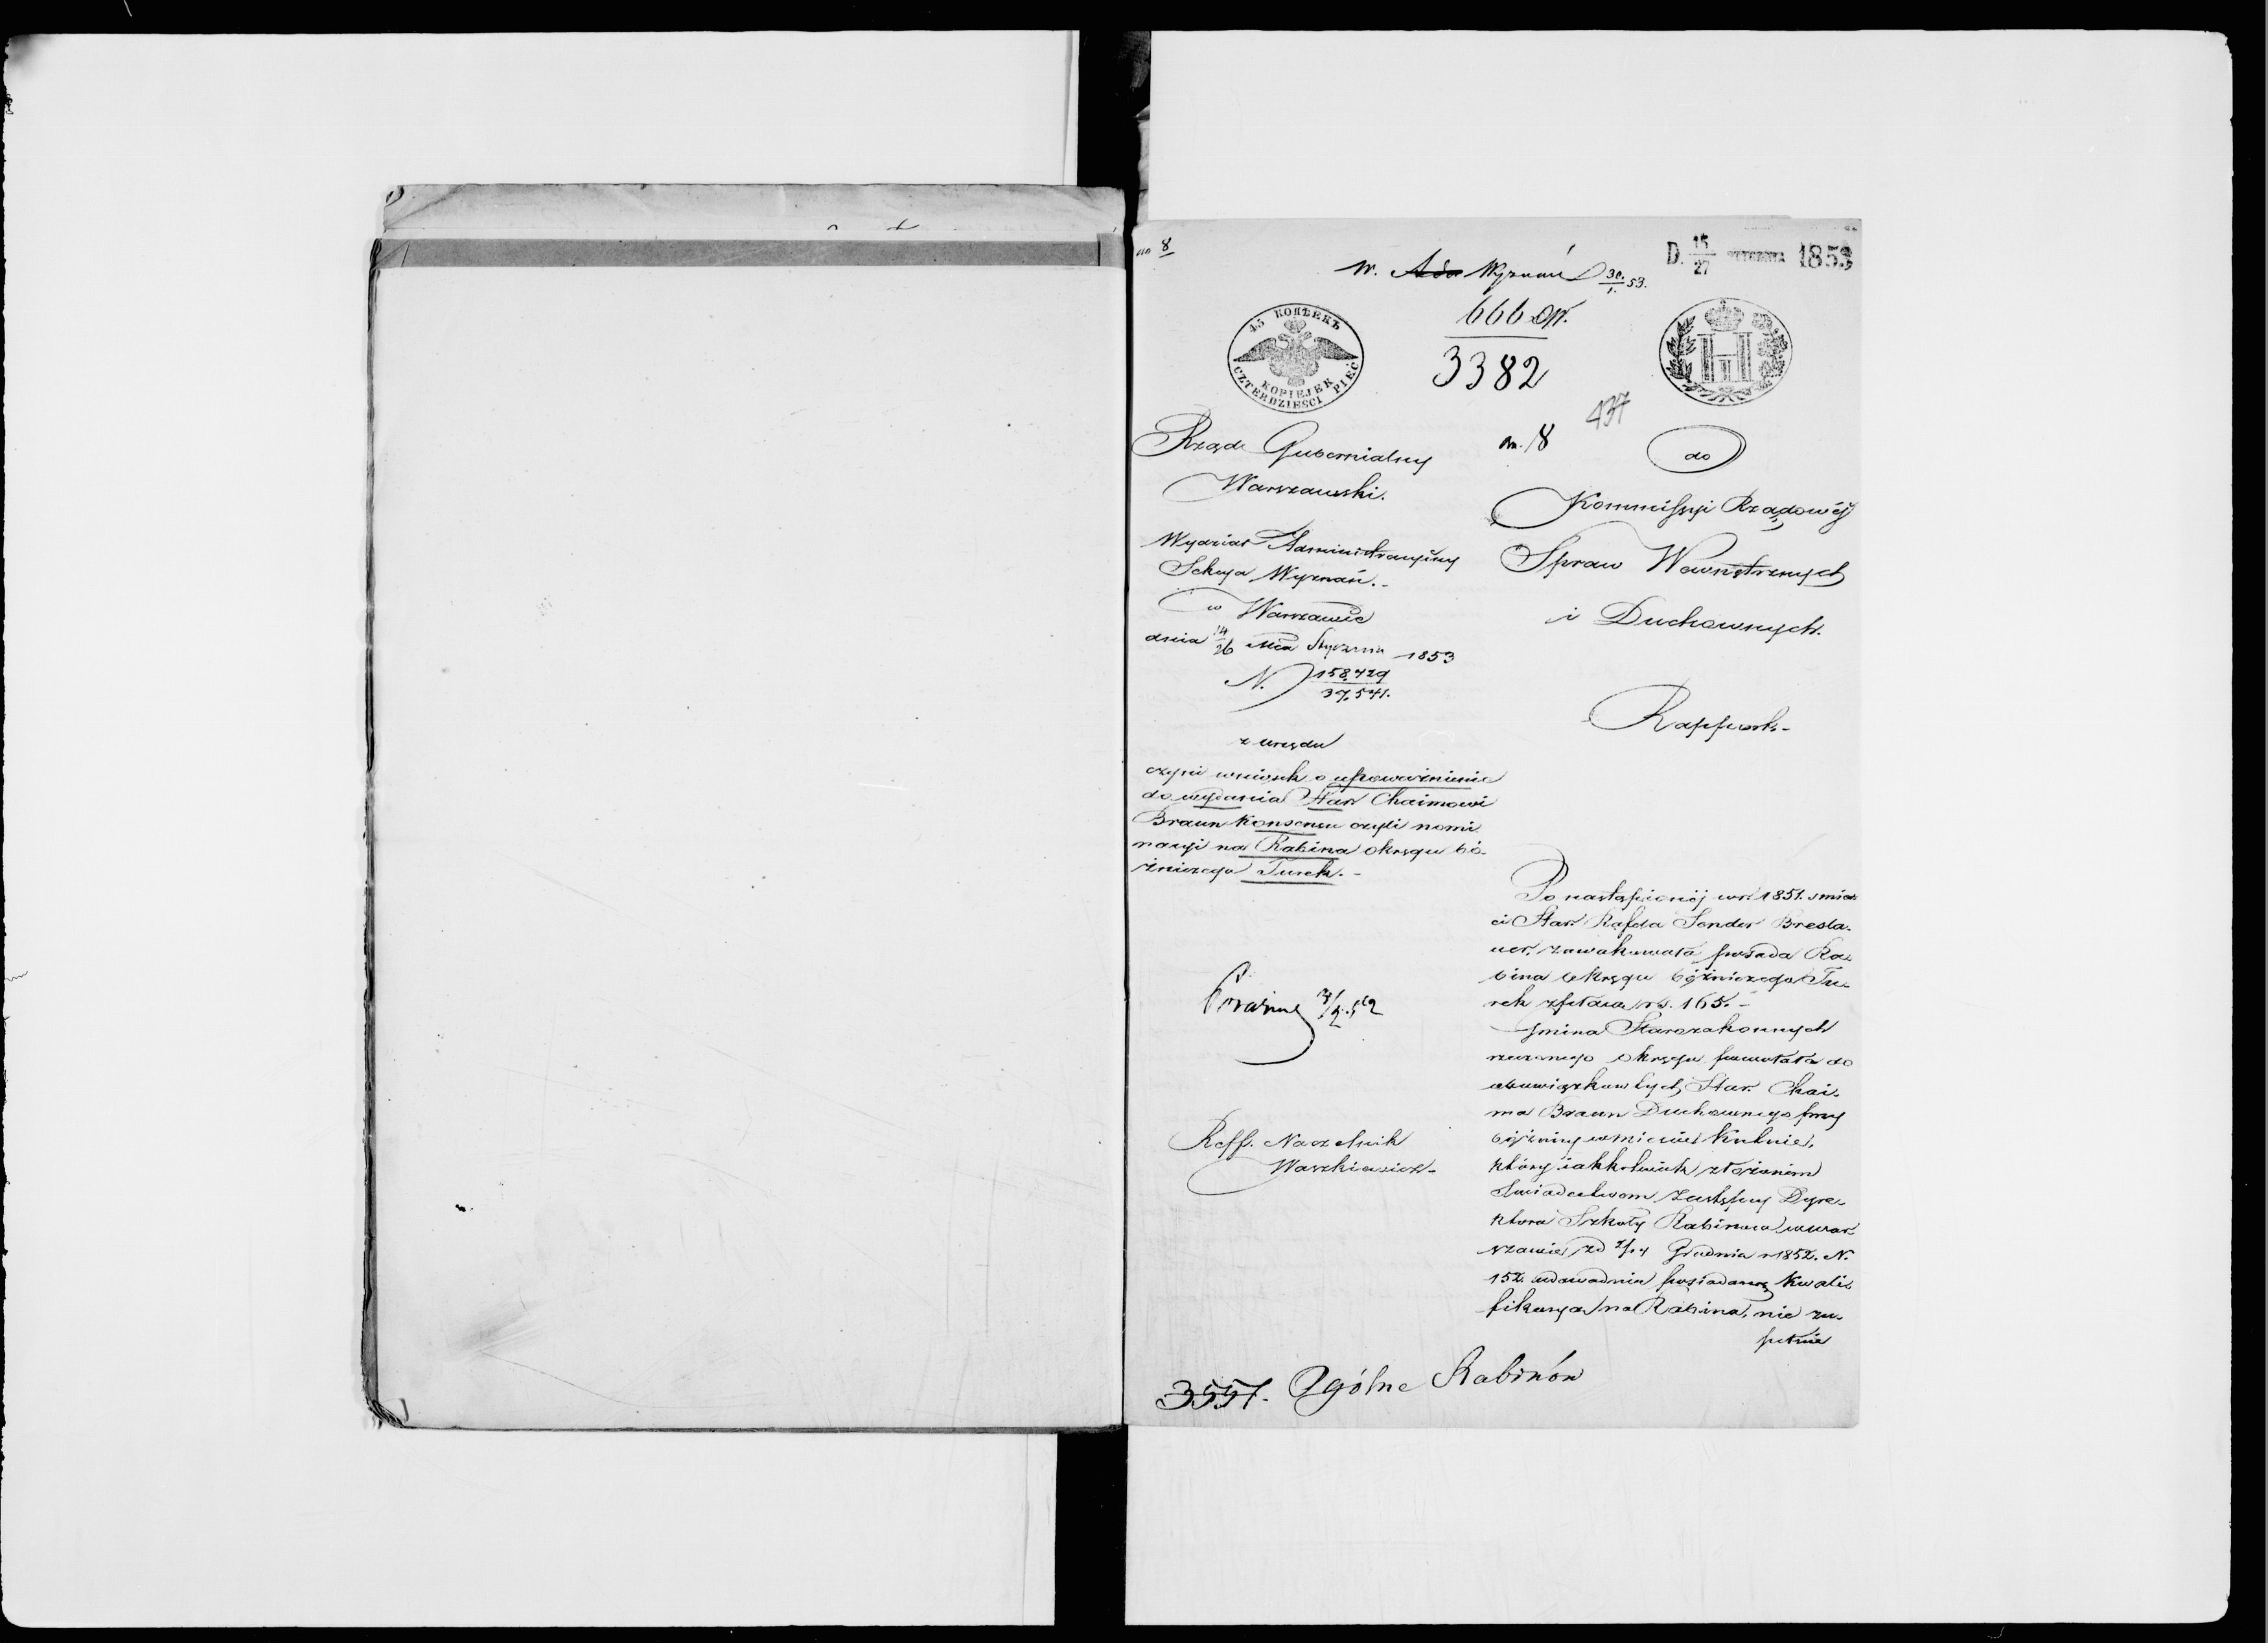 an 8
W. Ada Wyznań 30/1. 53.
D. 15/27 STYCZNIA 1853
666 Op.
3382
45 КОПѢЕКЪ
CZTERDZIEŚCI PIĘĆ
KOPIEJEK
H I
437
an. 18
Rząd Gubernialny
Warszawski.
Wydział Administracyjny
Sekcya Wyznań.
w Warszawie
dnia 14/26 Mca Stycznia 1853
N. 158,729/37,541.
z urzędu
czyni wniosek o upoważnienie
do wydania Star Chaimowi
Braun Konsensu czyli nomi
nacyi na Rabina okręgu bó-
żniczego Turek.-
3/2. 52
Reff. Naczelnik
Waszkiewicz
do
Kommissyi Rządowéj
Spraw Wewnętrznych
i Duchownych.
Rapport.-
Po nastąpionéj w r. 1851. śmier
ci Star. Sender Bresla-
uer, zawakowała posada Ra-
bina Okręgu bóżniczego Tu-
rek z płacą rs. 165.-
Gmina Starozakonnych
rzeczonego okręgu powołała do
obowiązków tych Star. Chai-
ma Braun Duchownego przy
bóżnicy w mieście Kutnie,
który jakkolwiek złożonem
świadectwem Zastępcy Dyre-
ktora Szkoły Rabinów w War
szawie z d 2/14 Grudnia r 1852. N.
152. udowadnia posiadaną kwali-
fikacya na Rabina, nie zu-
pełnie
3557. Ogólne Rabinów